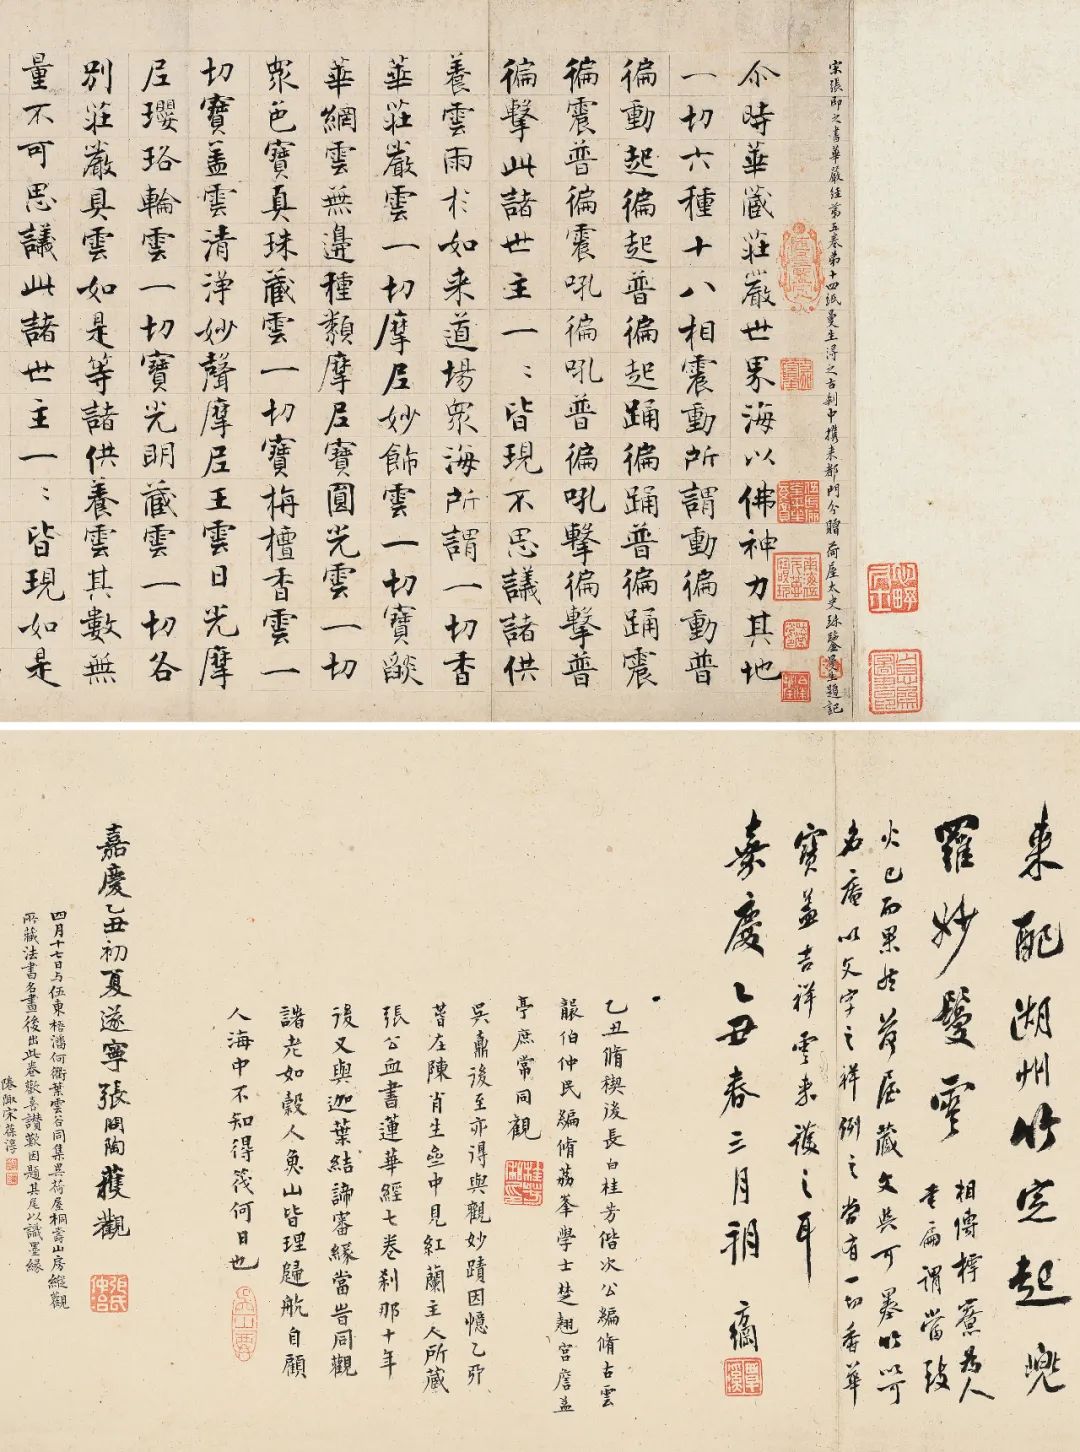 宋張即之書華嚴經第五卷第十四紙曼生得之古刹中攜来都門分贈荷屋太史珎鑒曼生題記
尒時華藏莊嚴世界海以佛神力其地
一切六種十八相震動所謂動徧動普
徧動起徧起普徧起踊徧踊普徧踊震
徧震普徧震吼徧吼普徧吼擊徧擊普
徧擊此諸世主一〻皆現不思議諸供
養雲雨於如来道場衆海所謂一切香
華莊嚴雲一切摩尼妙飾雲一切寶燄
華網雲無邊種類摩尼寶圓光雲一切
衆色寶真珠藏雲一切寶栴檀香雲一
切寶盖雲清淨妙聲摩尼王雲日光摩
尼瓔珞輪雲一切寶光明藏雲一切各
别莊嚴具雲如是等諸供養雲其數無
量不可思議此諸世主一〻皆現如是
東配湖州竹完起兜
羅妙鬘雲 相傳樗寮為人
書扁謂當致
火已而果然荷屋藏文吳可墨竹以可
名庵以文字之祥例之當有一切香華
寶盖吉祥雲来護之耳
嘉慶乙丑春三月朔
乙丑脩禊後長白桂芳偕次公編脩古雲
襲伯仲民編脩荔峯學士楚翹宫詹盖
亭庶常同觀
吳鼒後至亦得與觀妙蹟因憶乙卯
昔在陳肖生壘中見紅蘭主人所藏
張公血書蓮華經七卷刹那十年
後又與迦葉結諦審緣當昔同觀
諸老如穀人魚山皆理歸航自顧
人海中不知得筏何日也
嘉慶乙丑初夏遂寧張問陶獲觀
四月十七日与伍東梧潘何衢葉雲谷同集吳荷屋桐壽山房縱觀
所藏法書名畫後出此卷歡喜讚歎因題其尾以識墨緣
宋葆淳